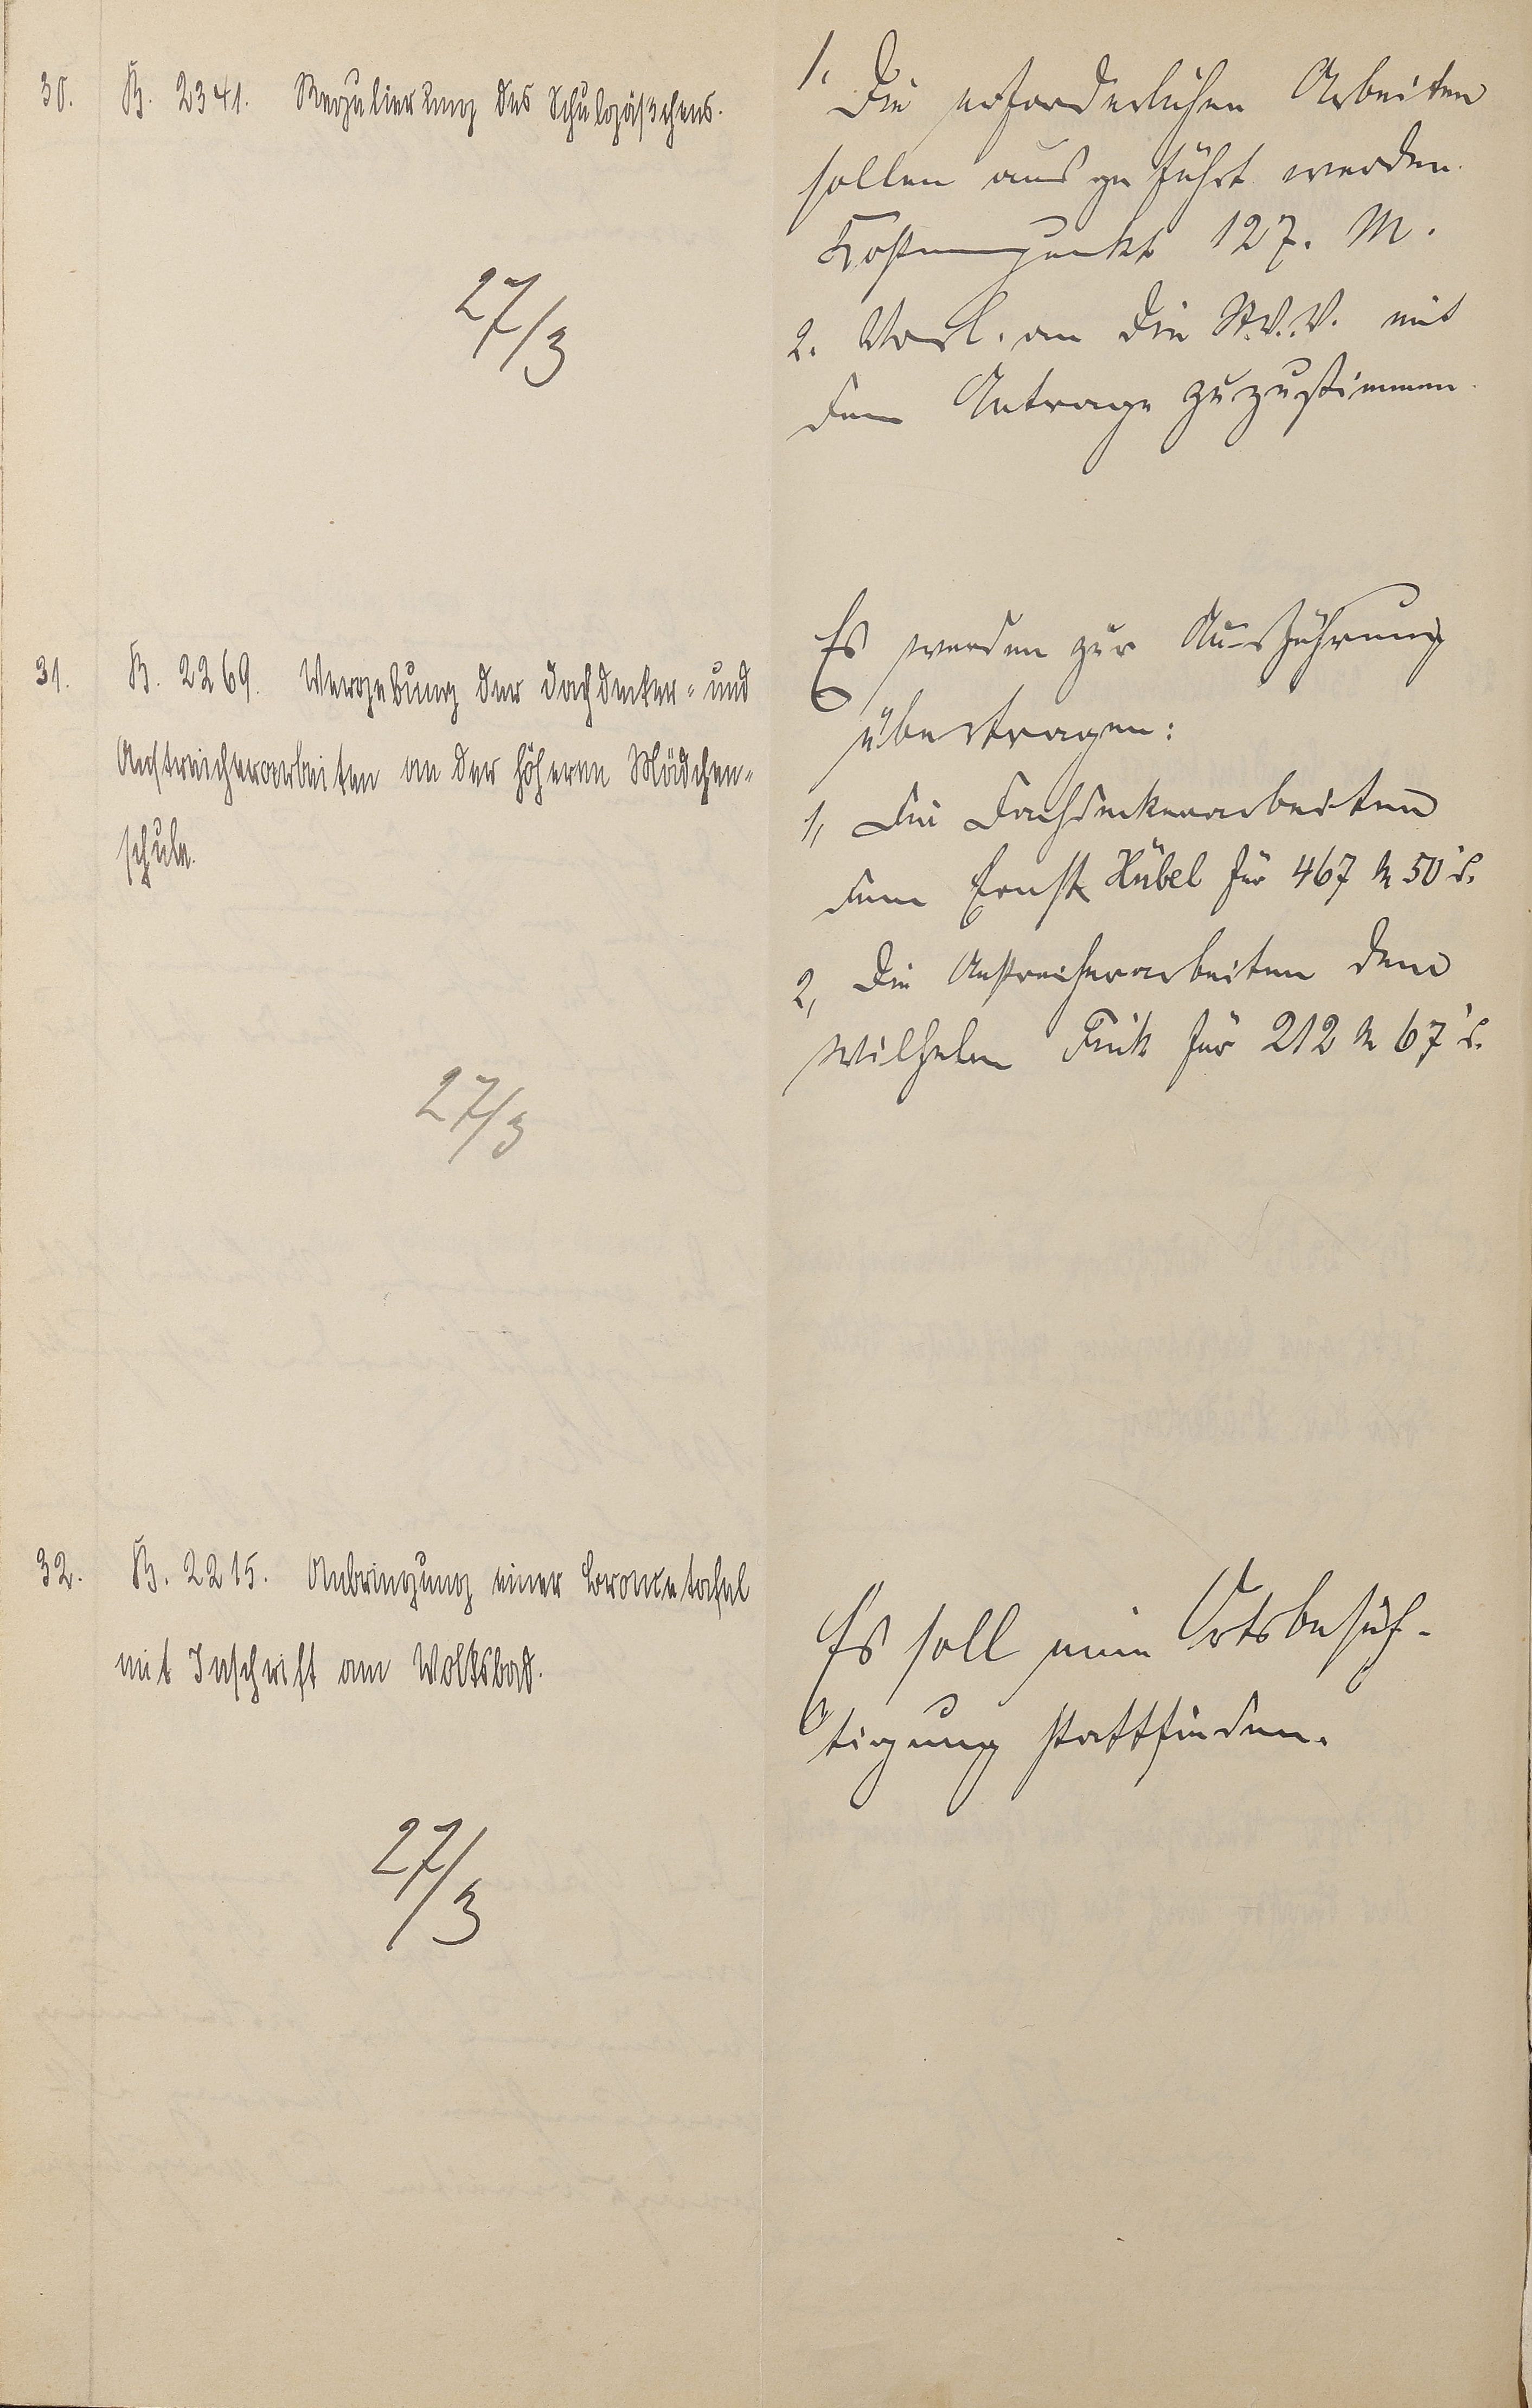 30. B. 2341. Regulierung des Schulgäßchens.
27/3
1. Die erforderlichen Arbeiten
sollen ausgeführt werden.
Kostenpunkt 127. M.
2. Vorl. an die St.V.V. mit
dem Antrage zuzustimmen.
31. B. 2269. Vergebung der Dachdecker- und
Anstreicherarbeiten an der höheren Mädchen-
schule.
27/3
Es werden zur Ausführung
übertragen:
1, Die Dachdeckerarbeiten
dem Ernst Hübel für 467 M 50 d.
2, Die Anstreicherarbeiten dem
Wilhelm für 212 M 67 d.
32. B. 2215. Anbringung einer Broncetafel
mit Inschrift am Volksbad.
27/3
Es soll eine Ortsbesich-
tigung stattfinden.